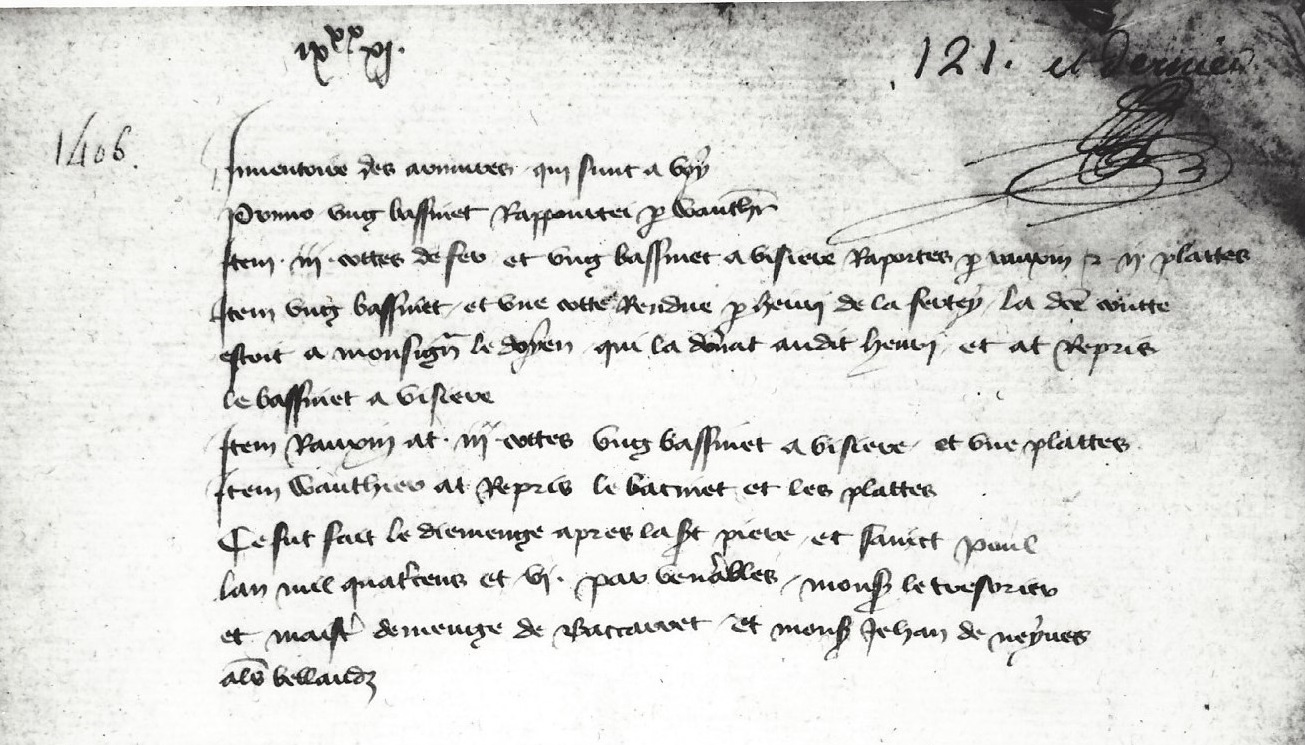 ixˣˣxj.
121. et dernier.
1406.
Inuentoire des armures qui sunt a
Primo vng bassinet Rapportei p wauthr
Item iij cottes de fer et vng bassinet a visiere Raportes p rauxin ij plattes
Item vng bassinet et vne cotte Rendue p henri de la fertey la dce
estoit a monsignr le doyen qui la donat audit henri et at Repris
le bassinet a visiere
Item Rauxin at iij cottes vng bassinet a visiere et vne plattes
Item wauthier at Repris le bacinet et les plattes
Ce fut fait le diemenge apres la st piere et sainct poul
lan mil quatrcens et vj. par venrables monsr le tresorier
et maistr demenge de Baccarret et monsr Jehan de
als